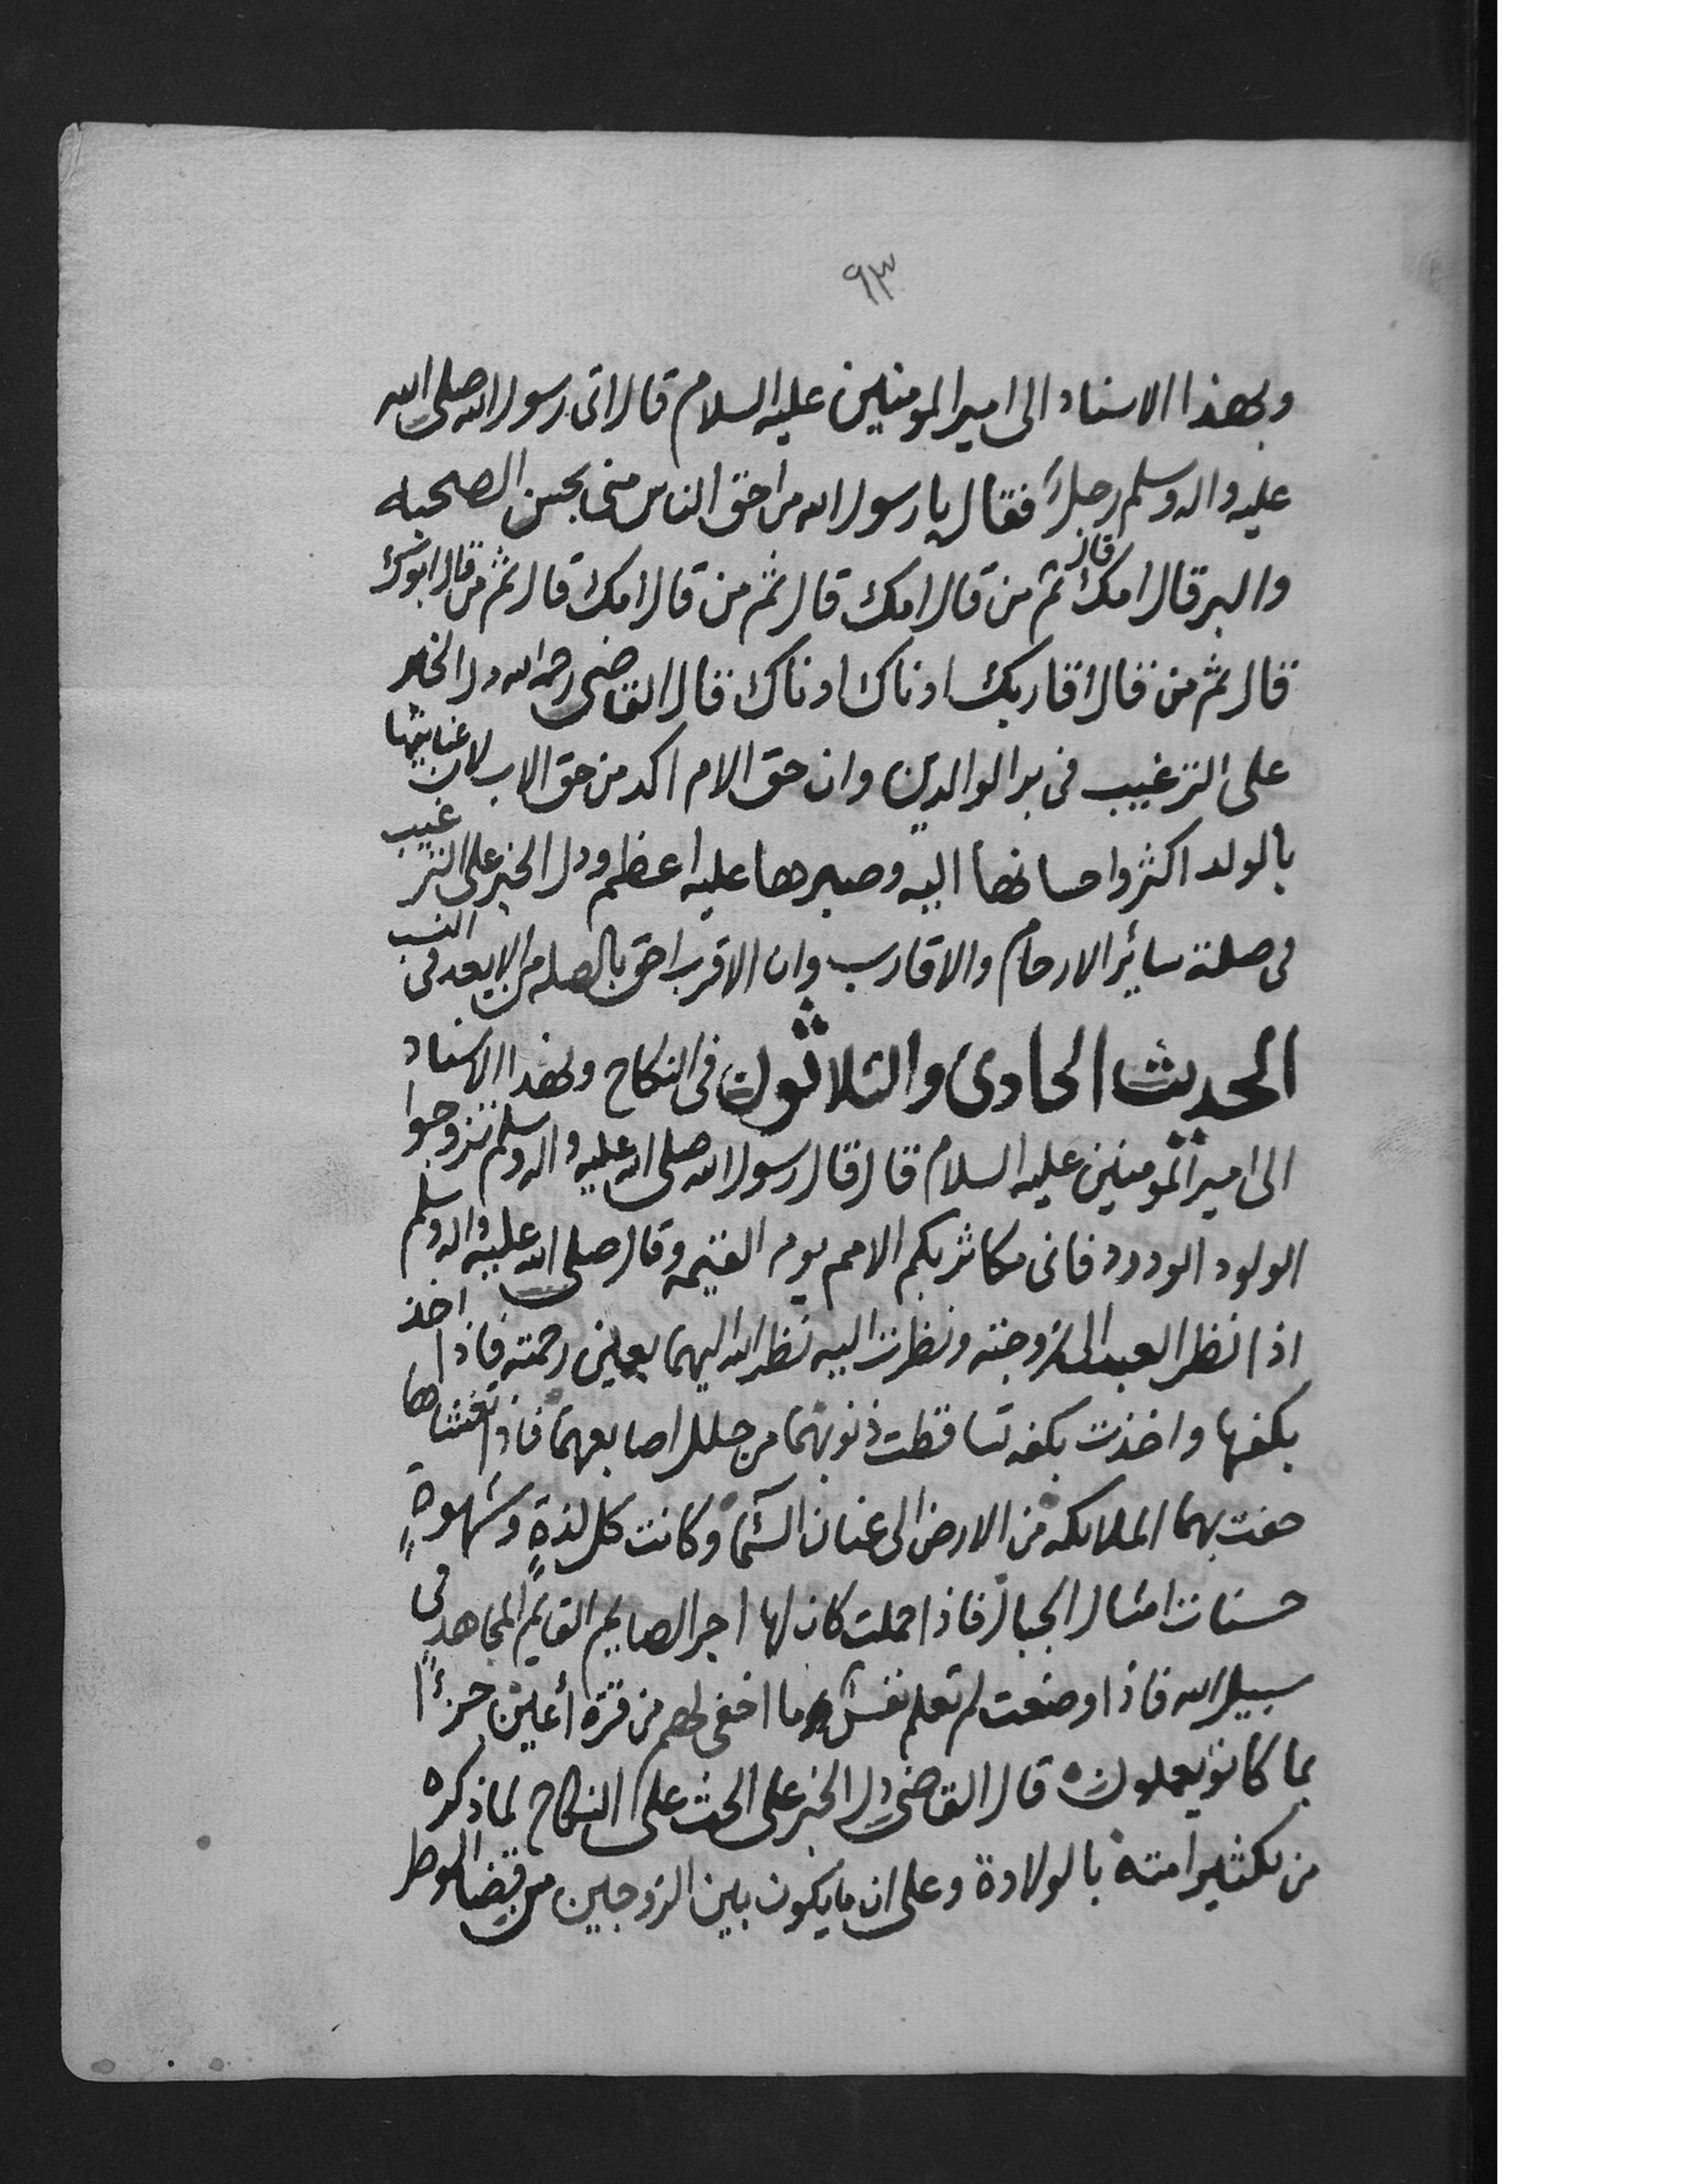 ٩٣
وبهذا الاسناد الى امير المومنين عليه السلام قال اتى رسول الله صلى الله
عليه واله وسلم رجلٌ فقال يا رسول الله من احق الناس منى بحسن الصحبه
والبر قال امك قال ثم من قال امك قال ثم من قال امك قال ثم من قال ابوك
قال ثم من قال اقاربك ادناك ادناك قال القاضى رحمه الله دل الخبر
على الترغيب فى بر الوالدين وان حق الام اكد من حق الاب لان عنايتها
بالولد اكثر واحسانها اليه وصبرها عليه اعظم ودل الخبر على الترغيب
فى صلة سائر الارحام والاقارب وان الاقرب احق بالصله من الابعد فى النسب
الحديث الحادى والثلاثون فى النكاح وبهذا الاسناد
الى امير المومنين عليه السلام قال قال رسول الله صلى الله عليه واله وسلم تزوجوا
الولود الودود فانى مكاثر بكم الامم يوم القيمه وقال صلى الله عليه واله وسلم
اذا نظر العبد الى زوجته ونظرت اليه نظر الله اليهما بعين رحمته فاذا اخذ
بكفها واخذت بكفه تساقطت ذنوبهما من خلل اصابعهما فاذا تغشاها
حفت بهما الملايكه من الارض الى عنان السَّما وكانت كل لذةٍ وشهوةٍ
حسنات امثال الجبال فاذا حملت كان لها اجر الصايم القايم المجاهد فى
سبيل الله فاذا وضعت لم تعلم نفس ما اخفى لهم من قرة أعين جزءًا
بما كانو يعملون قال القاضى دل الخبر على الحث على النكاح لما ذكره
من تكثير امته بالولادة وعلى ان ما يكون بين الزوجين من قضا الوطر